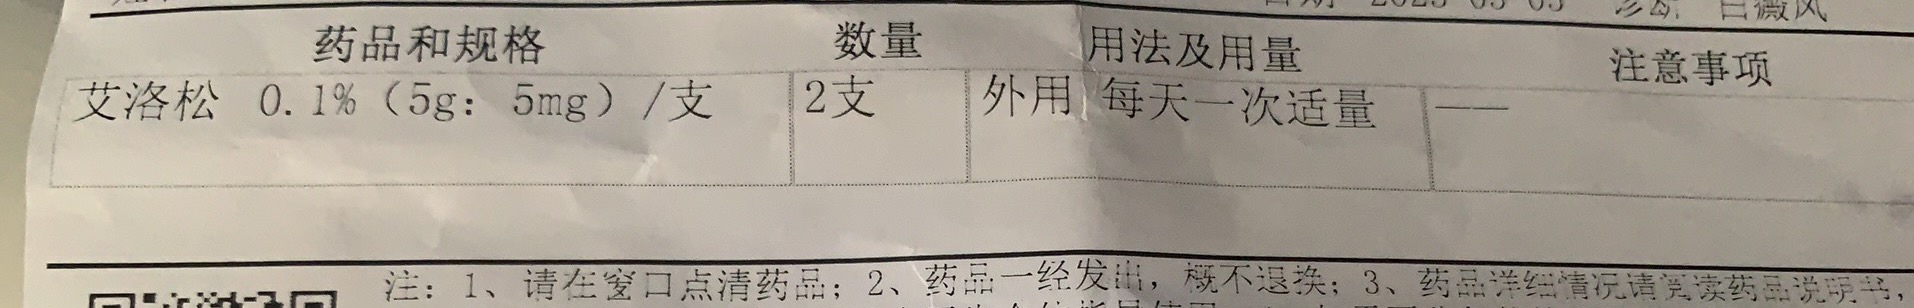 日期 2023-03-03 诊断 白癜风
药品和规格 数量 用法及用量 注意事项
艾洛松 0.1%（5g：5mg）/支 2支 外用 每天一次适量 ——
注：1、请在窗口点清药品；2、药品一经发出，概不退换；3、药品详细情况请阅读药品说明书，